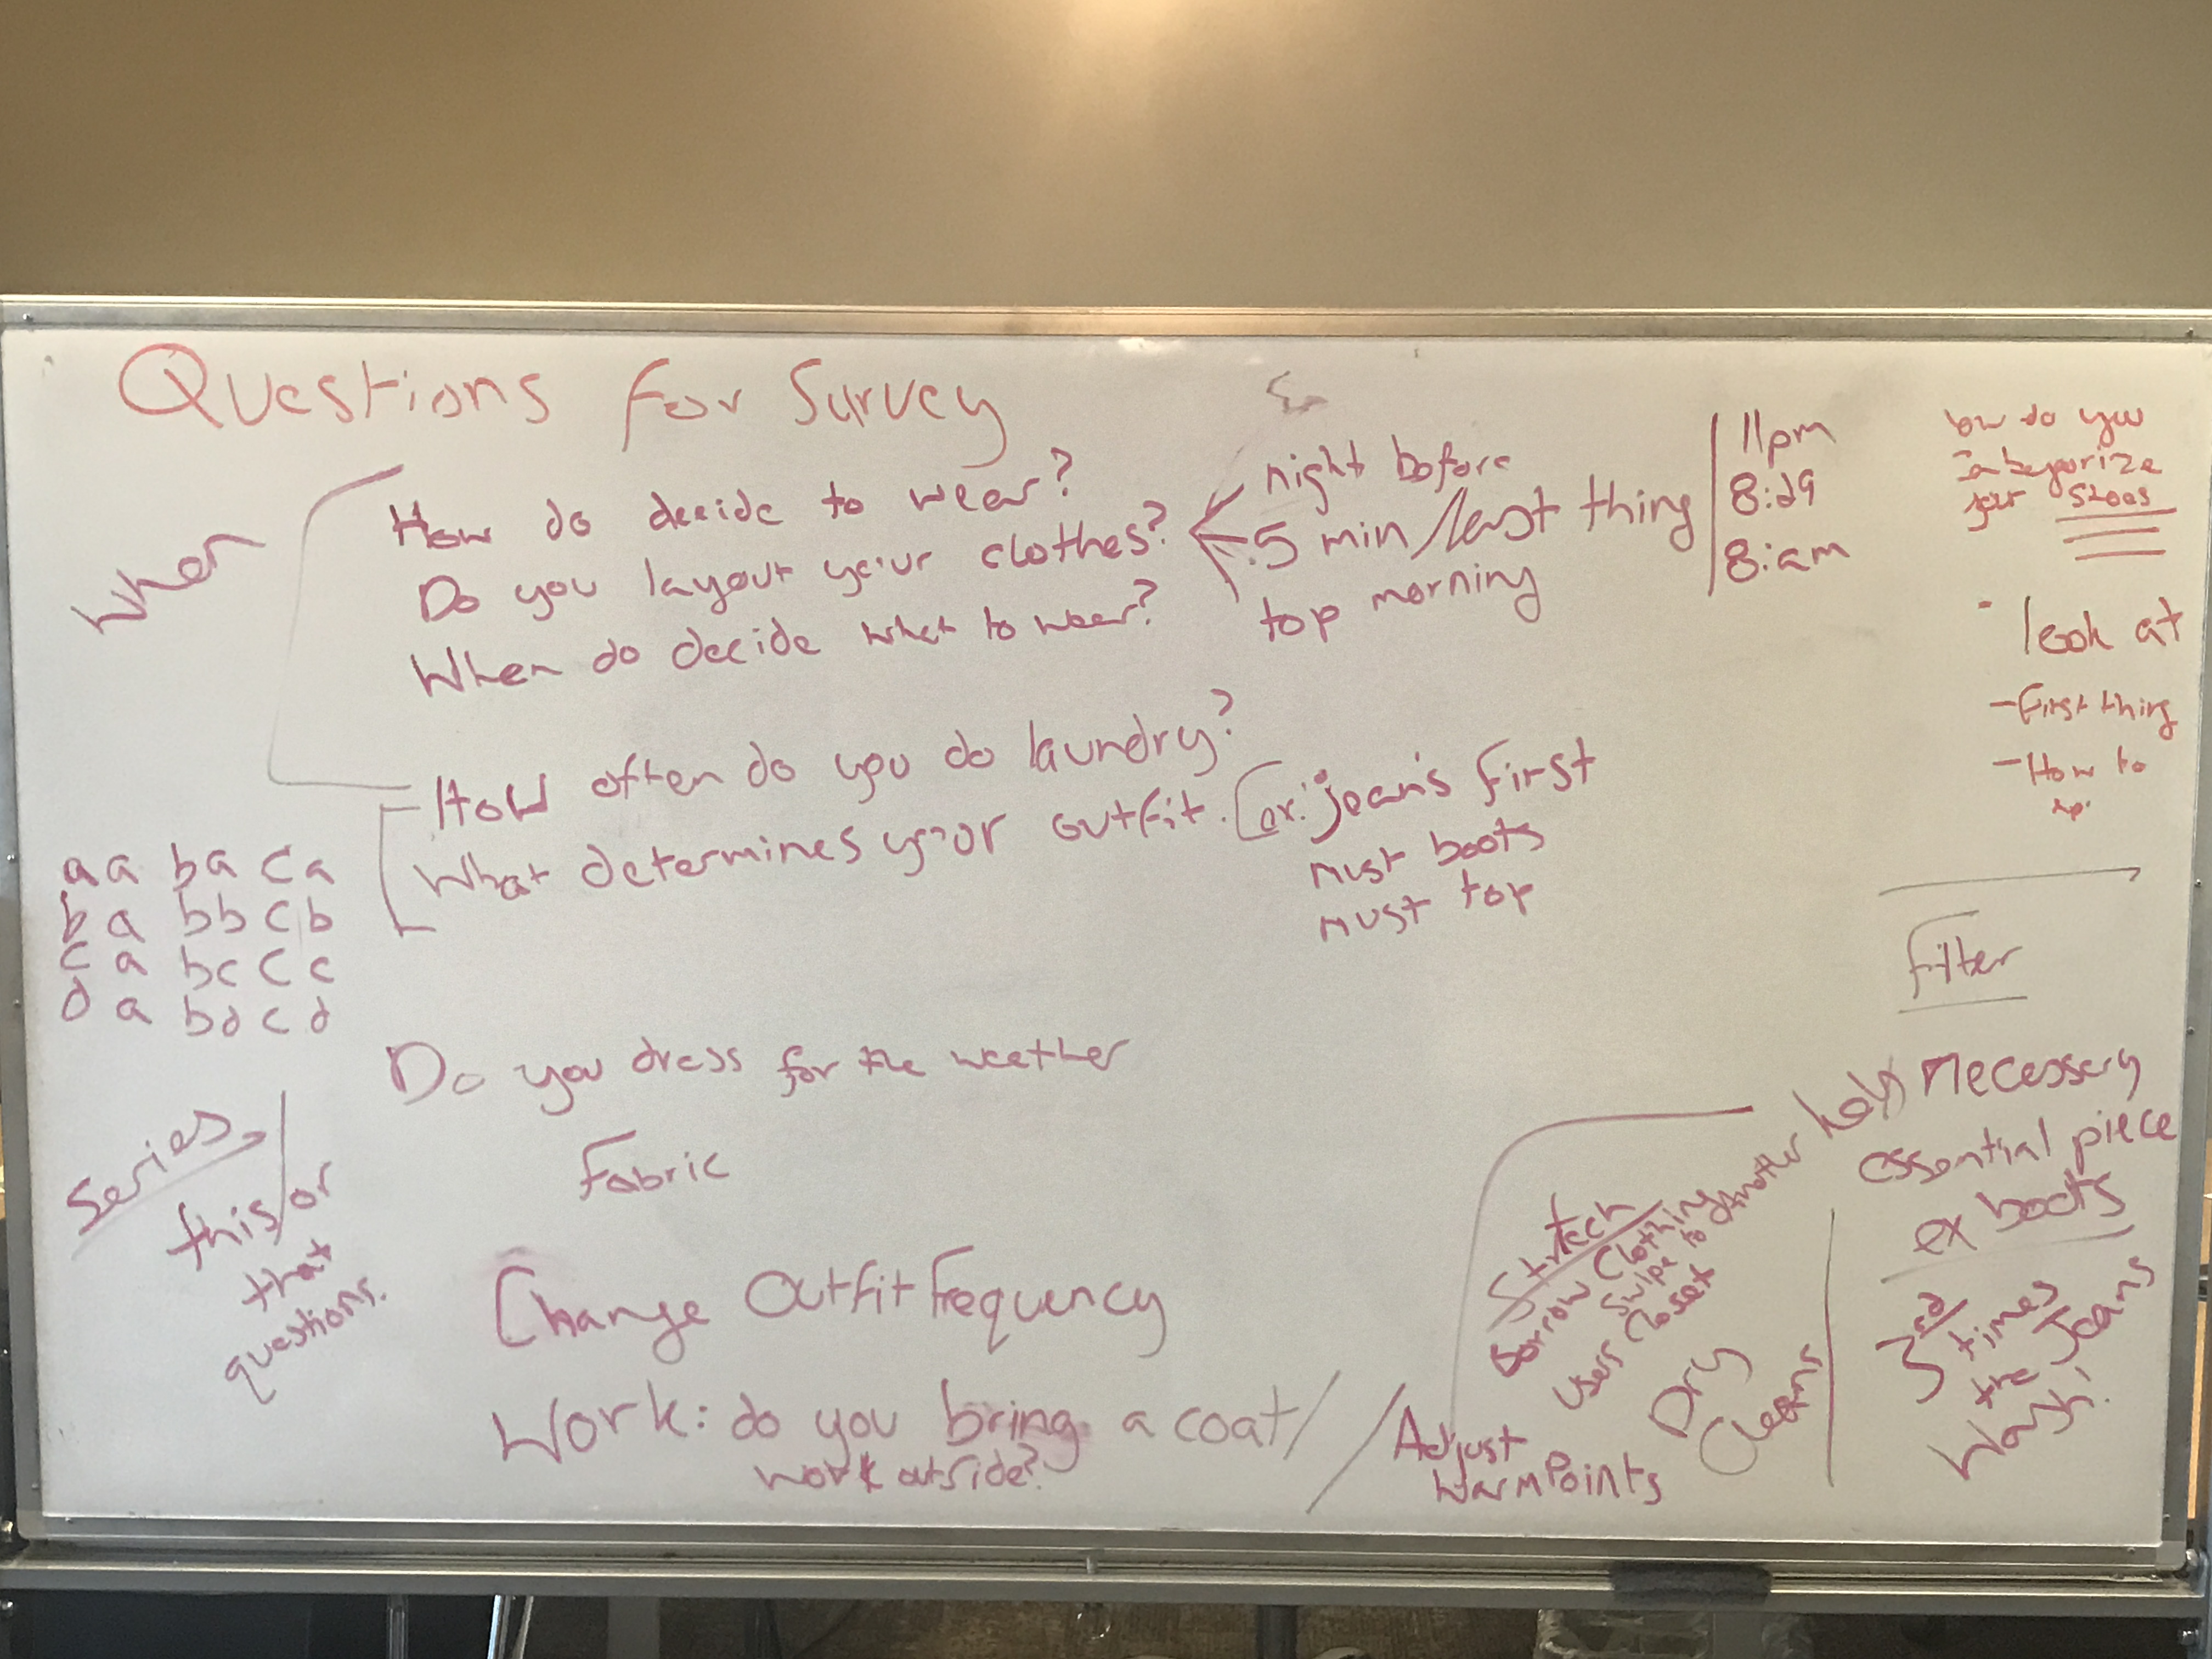 Questions For Survey
When
How do decide to wear?
Do you layout your clothes?
When do decide what to wear?
night before
5 min/last thing
top morning
11pm
8:29
8:am
ow do you
categorize
your shoes
look at
- First thing
- How to
How often do you do laundry?
What determines your outfit. [ex: jean's first
must boots
must top
a a b a c a
b a b b c b
c a b c c c
d a b d c d
Filter
Do you dress for the weather
Fabric
Series,
this/or
that
questions.
Change Outfit Frequency
Work: do you bring a coat/
work outside?
Adjust
Warm Points
Strtech
Borrow Clothing
Swipe to another
Users Closet
Dry
Cleans
necessary
essential piece
ex boots
3rd times
the Jeans
Wash!